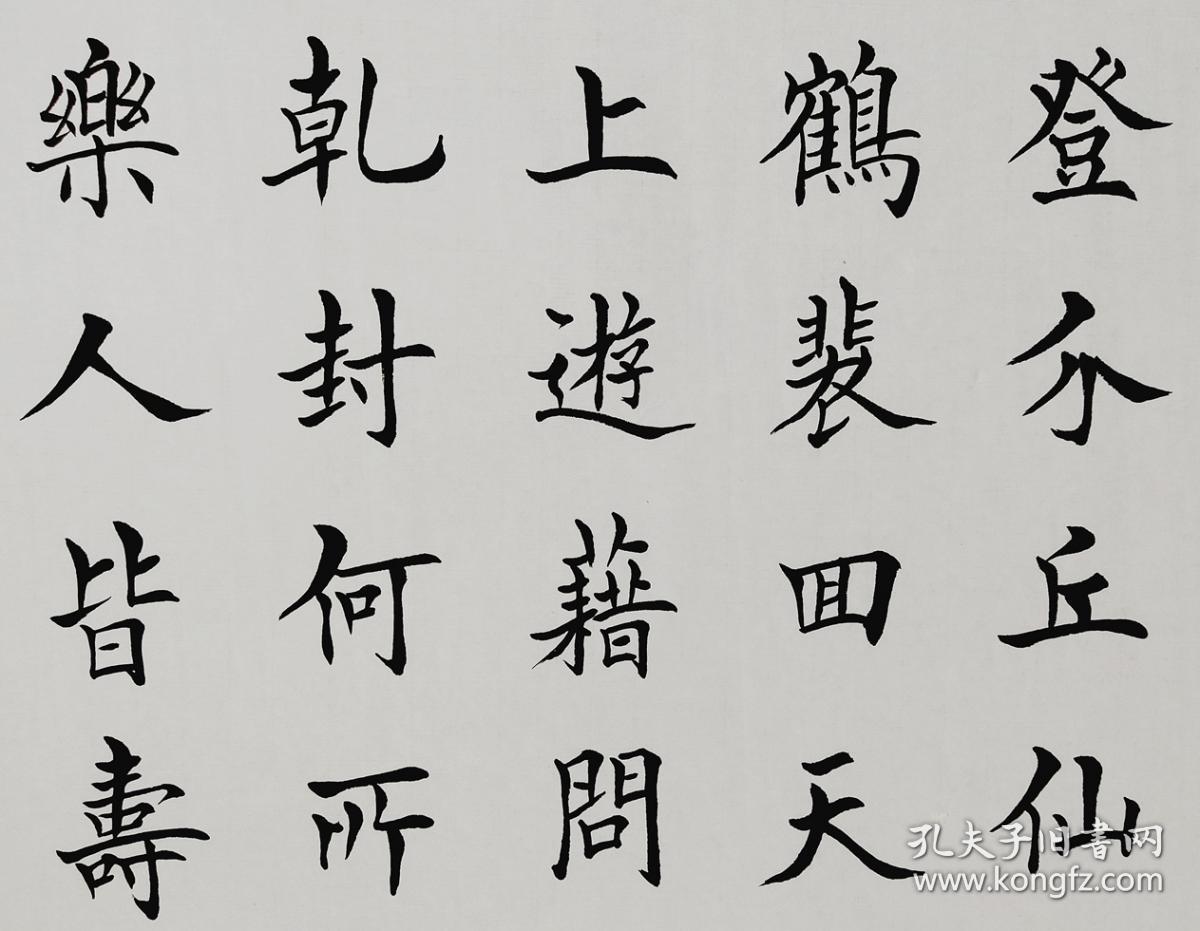 登介丘仙
鶴裴回天
上遊藉問
乾封何所
樂人皆壽
孔夫子旧書网
www.kongfz.com